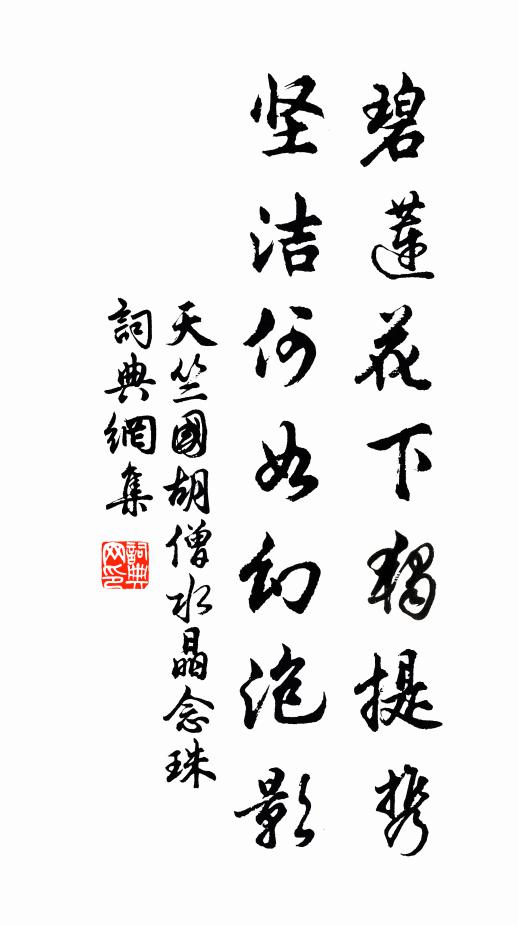 碧蓮花下獨提携
坚洁何如幻泡影
天竺國胡僧水晶念珠
詞典網集
詞典网印